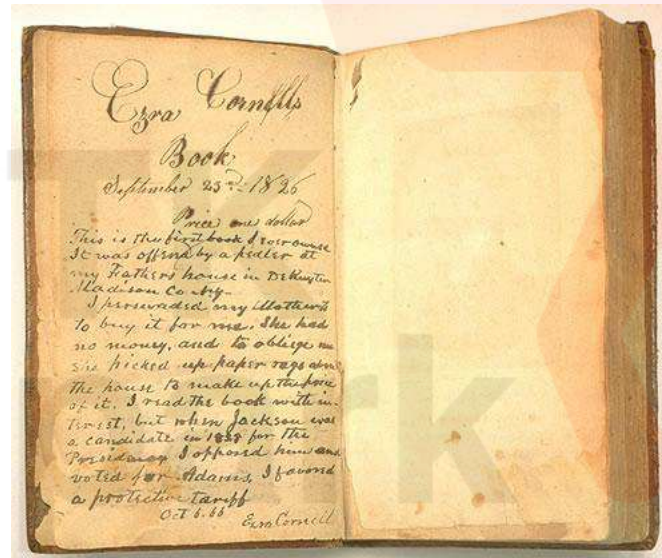 Ezra Cornells
Book
September 23rd 1826
Price one dollar
This is the first book I ever owned
It was offered by a pedler at
my Fathers house in DeRuyter
Madison Co NY.
I perswaded my Mother
to buy it for me. She had
no money, and to obliege me
she picked up paper rags
the house to make up the price
of it. I read the book with in-
terest, but when Jackson was
a candidate in 1828 for the
Presidency I opposed him and
voted for Adams, I favored
a protective tariff
Oct 6. 66
Ezra Cornell